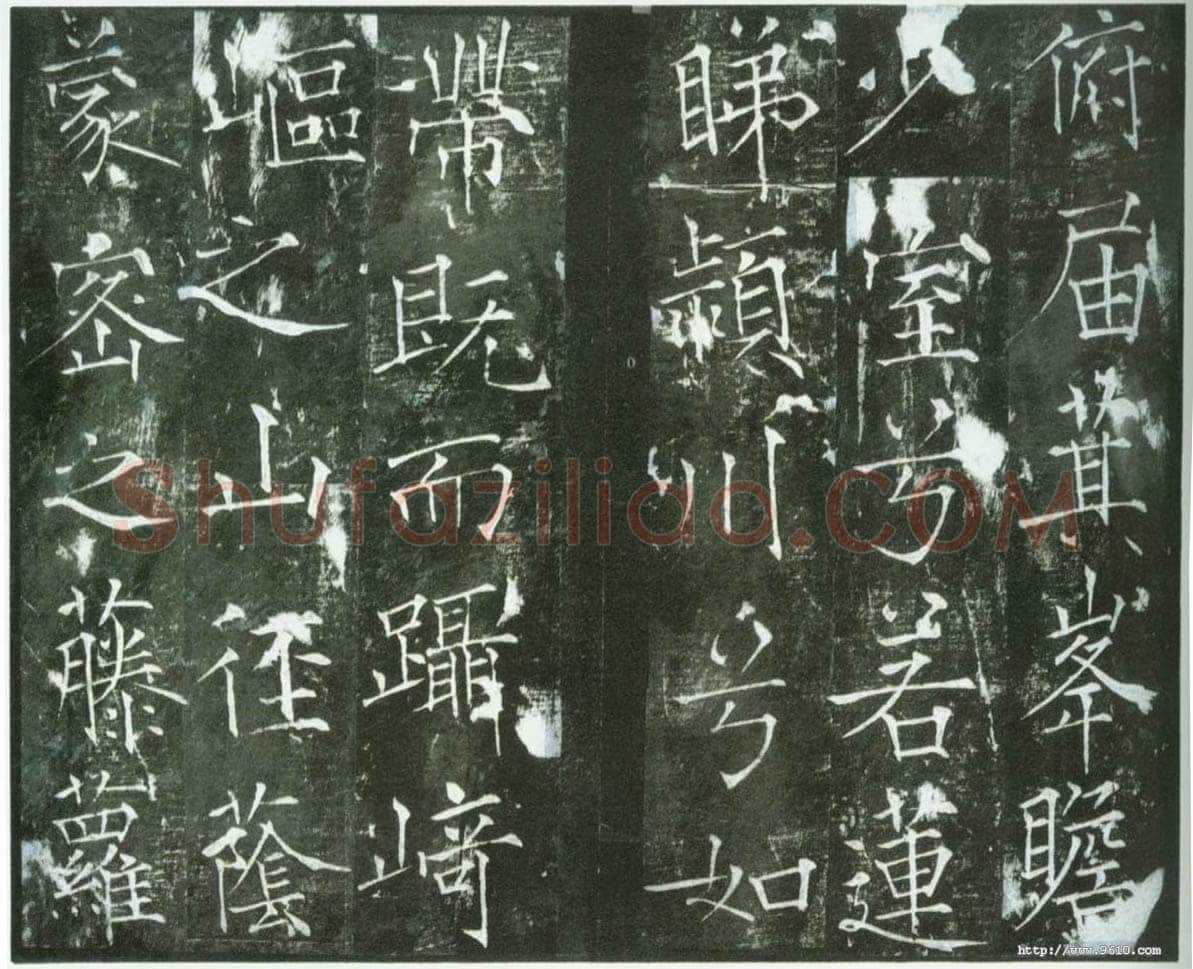 俯届其峯瞻
少室兮若蓮
睇潁川兮如
帶既而躡崎
嶇之山徑蔭
蒙密之藤蘿
Shufaziliao.COM
http://www.9610.com